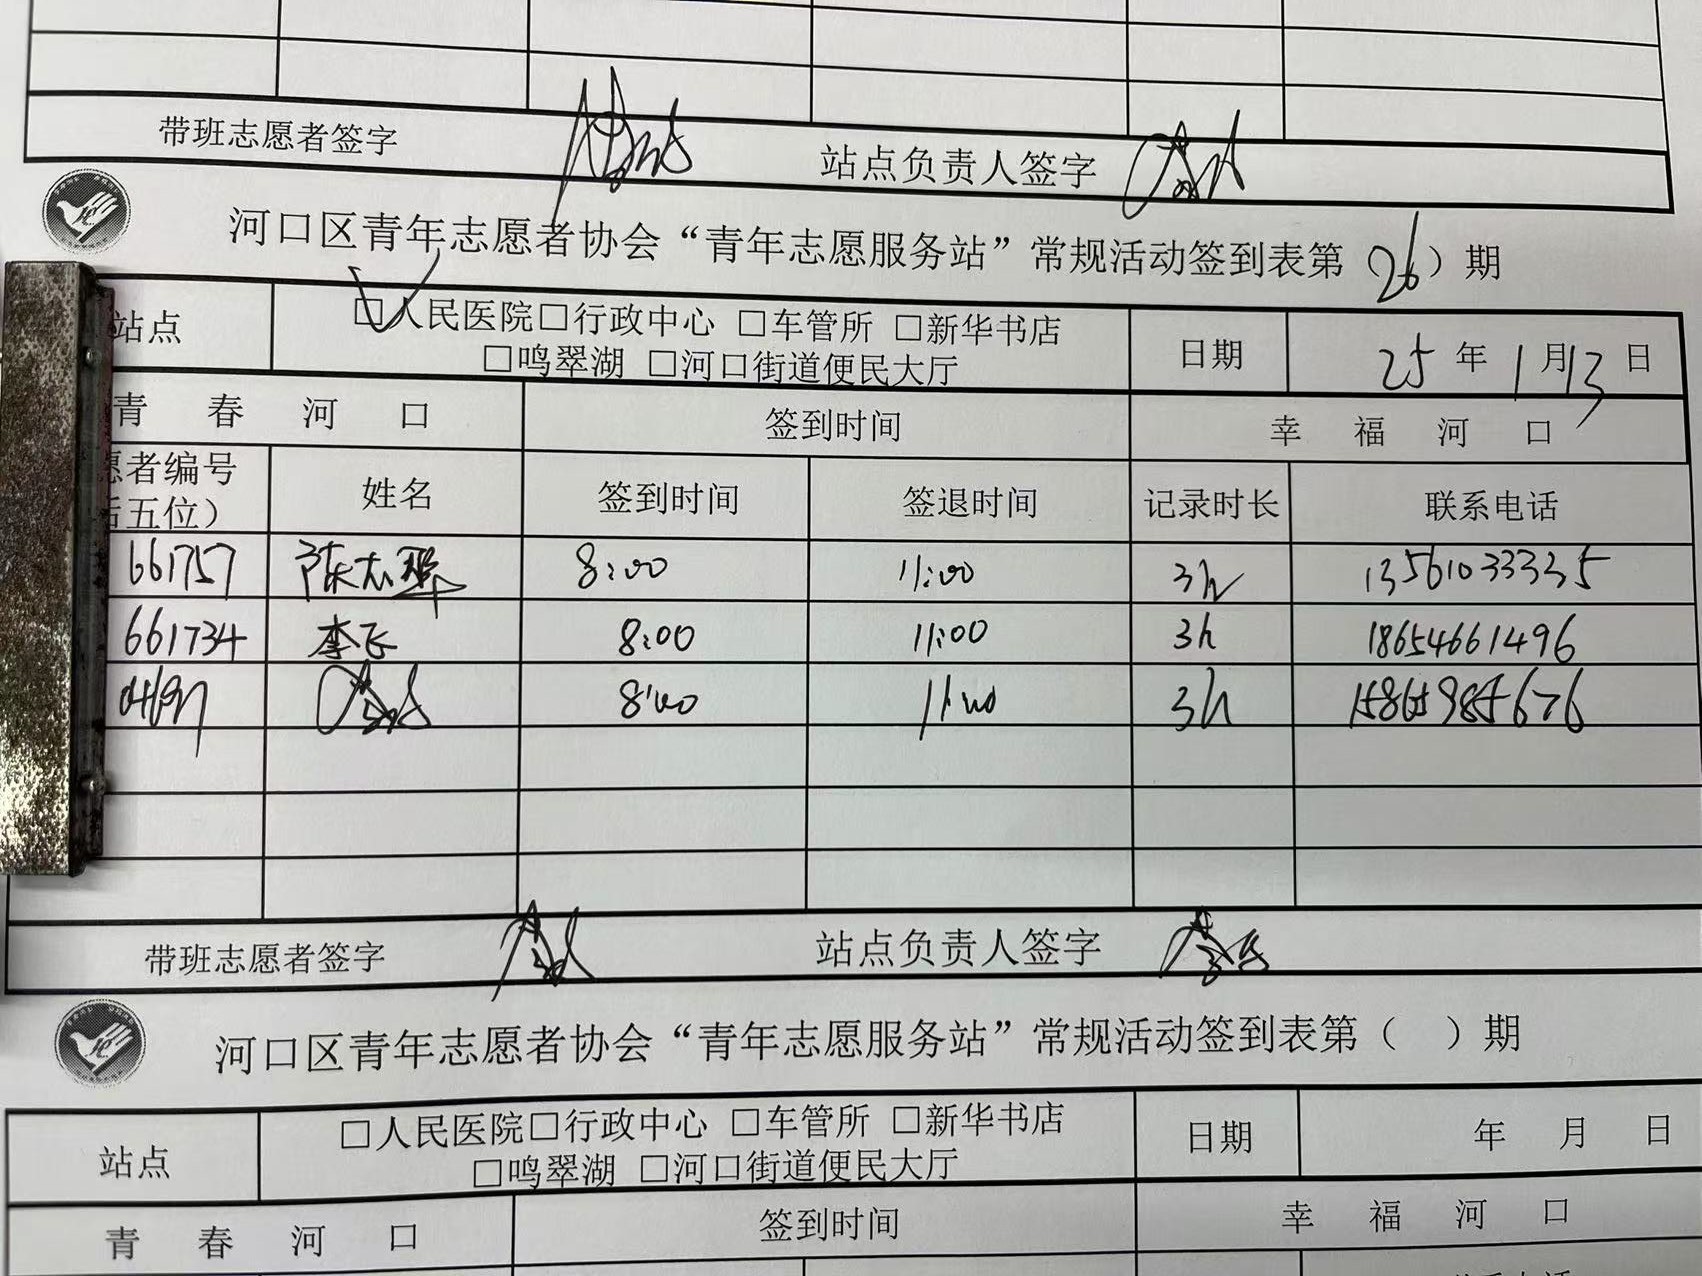 带班志愿者签字 站点负责人签字
河口区青年志愿者协会“青年志愿服务站”常规活动签到表第（26）期
站点 □人民医院□行政中心 □车管所 □新华书店 日期 25年1月13日
□鸣翠湖 □河口街道便民大厅
青 春 河 口 签到时间 幸 福 河 口
愿者编号 姓名 签到时间 签退时间 记录时长 联系电话
后五位）
661757 陈志翠 8:00 11:00 3h 13561033335
661734 李飞 8:00 11:00 3h 18654661496
8:00 11:00 3h
带班志愿者签字 站点负责人签字
河口区青年志愿者协会“青年志愿服务站”常规活动签到表第（ ）期
站点 □人民医院□行政中心 □车管所 □新华书店 日期 年 月 日
□鸣翠湖 □河口街道便民大厅
青 春 河 口 签到时间 幸 福 河 口